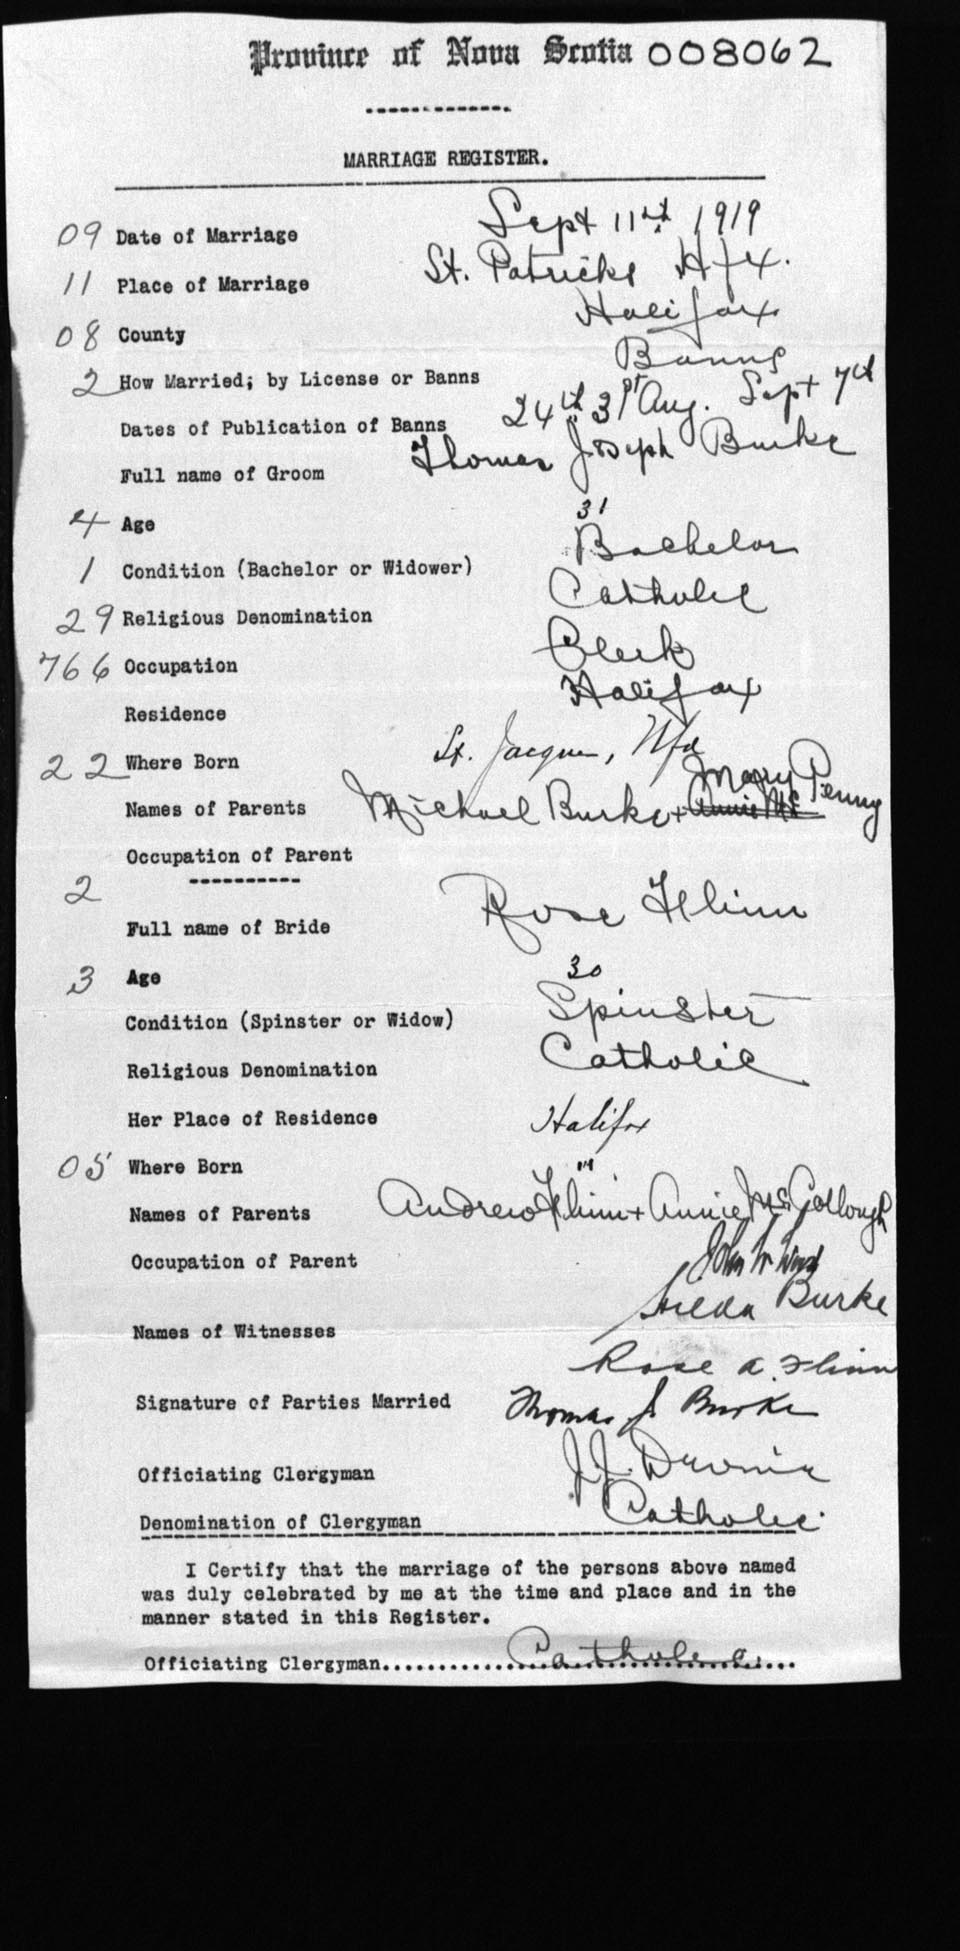 Province of Nova Scotia 008062
MARRIAGE REGISTER.
09 Date of Marriage Sept 11th 1919
11 Place of Marriage St. Patricks Hfx.
08 County Halifax
2 How Married; by License or Banns Banns
Dates of Publication of Banns 24th 31st Aug. Sept 7th
Full name of Groom Thomas Joseph Burke
4 Age 31
1 Condition (Bachelor or Widower) Bachelor
29 Religious Denomination Catholic
766 Occupation Clerk
Residence Halifax
22 Where Born St. Jacques, Nfd
Names of Parents Michael Burke + Annie Mc Mary Penny
Occupation of Parent
2
Full name of Bride Rose Flinn
3 Age 30
Condition (Spinster or Widow) Spinster
Religious Denomination Catholic
Her Place of Residence Halifax
05 Where Born "
Names of Parents Andrew Flinn + Annie McGollough
Occupation of Parent
John W
Names of Witnesses Hilda Burke
Rose A. Flinn
Signature of Parties Married Thomas J. Burke
Officiating Clergyman J.J.
Denomination of Clergyman Catholic
I Certify that the marriage of the persons above named
was duly celebrated by me at the time and place and in the
manner stated in this Register.
Officiating Clergyman..........Catholic